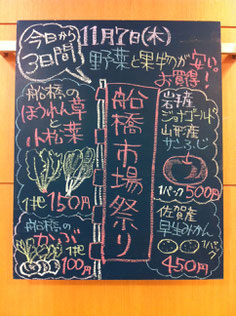 今日から
3日間
11月7日(木)
野菜と果物が安い。
お買得!
船橋の
ほうれん草
と
小松菜
1把150円
船橋の
かぶ
1把
100円
船橋市場祭り
岩手産
ジョナゴールド
山形産
サンふじ
1パック500円
佐賀産
早生みかん
1パック
450円